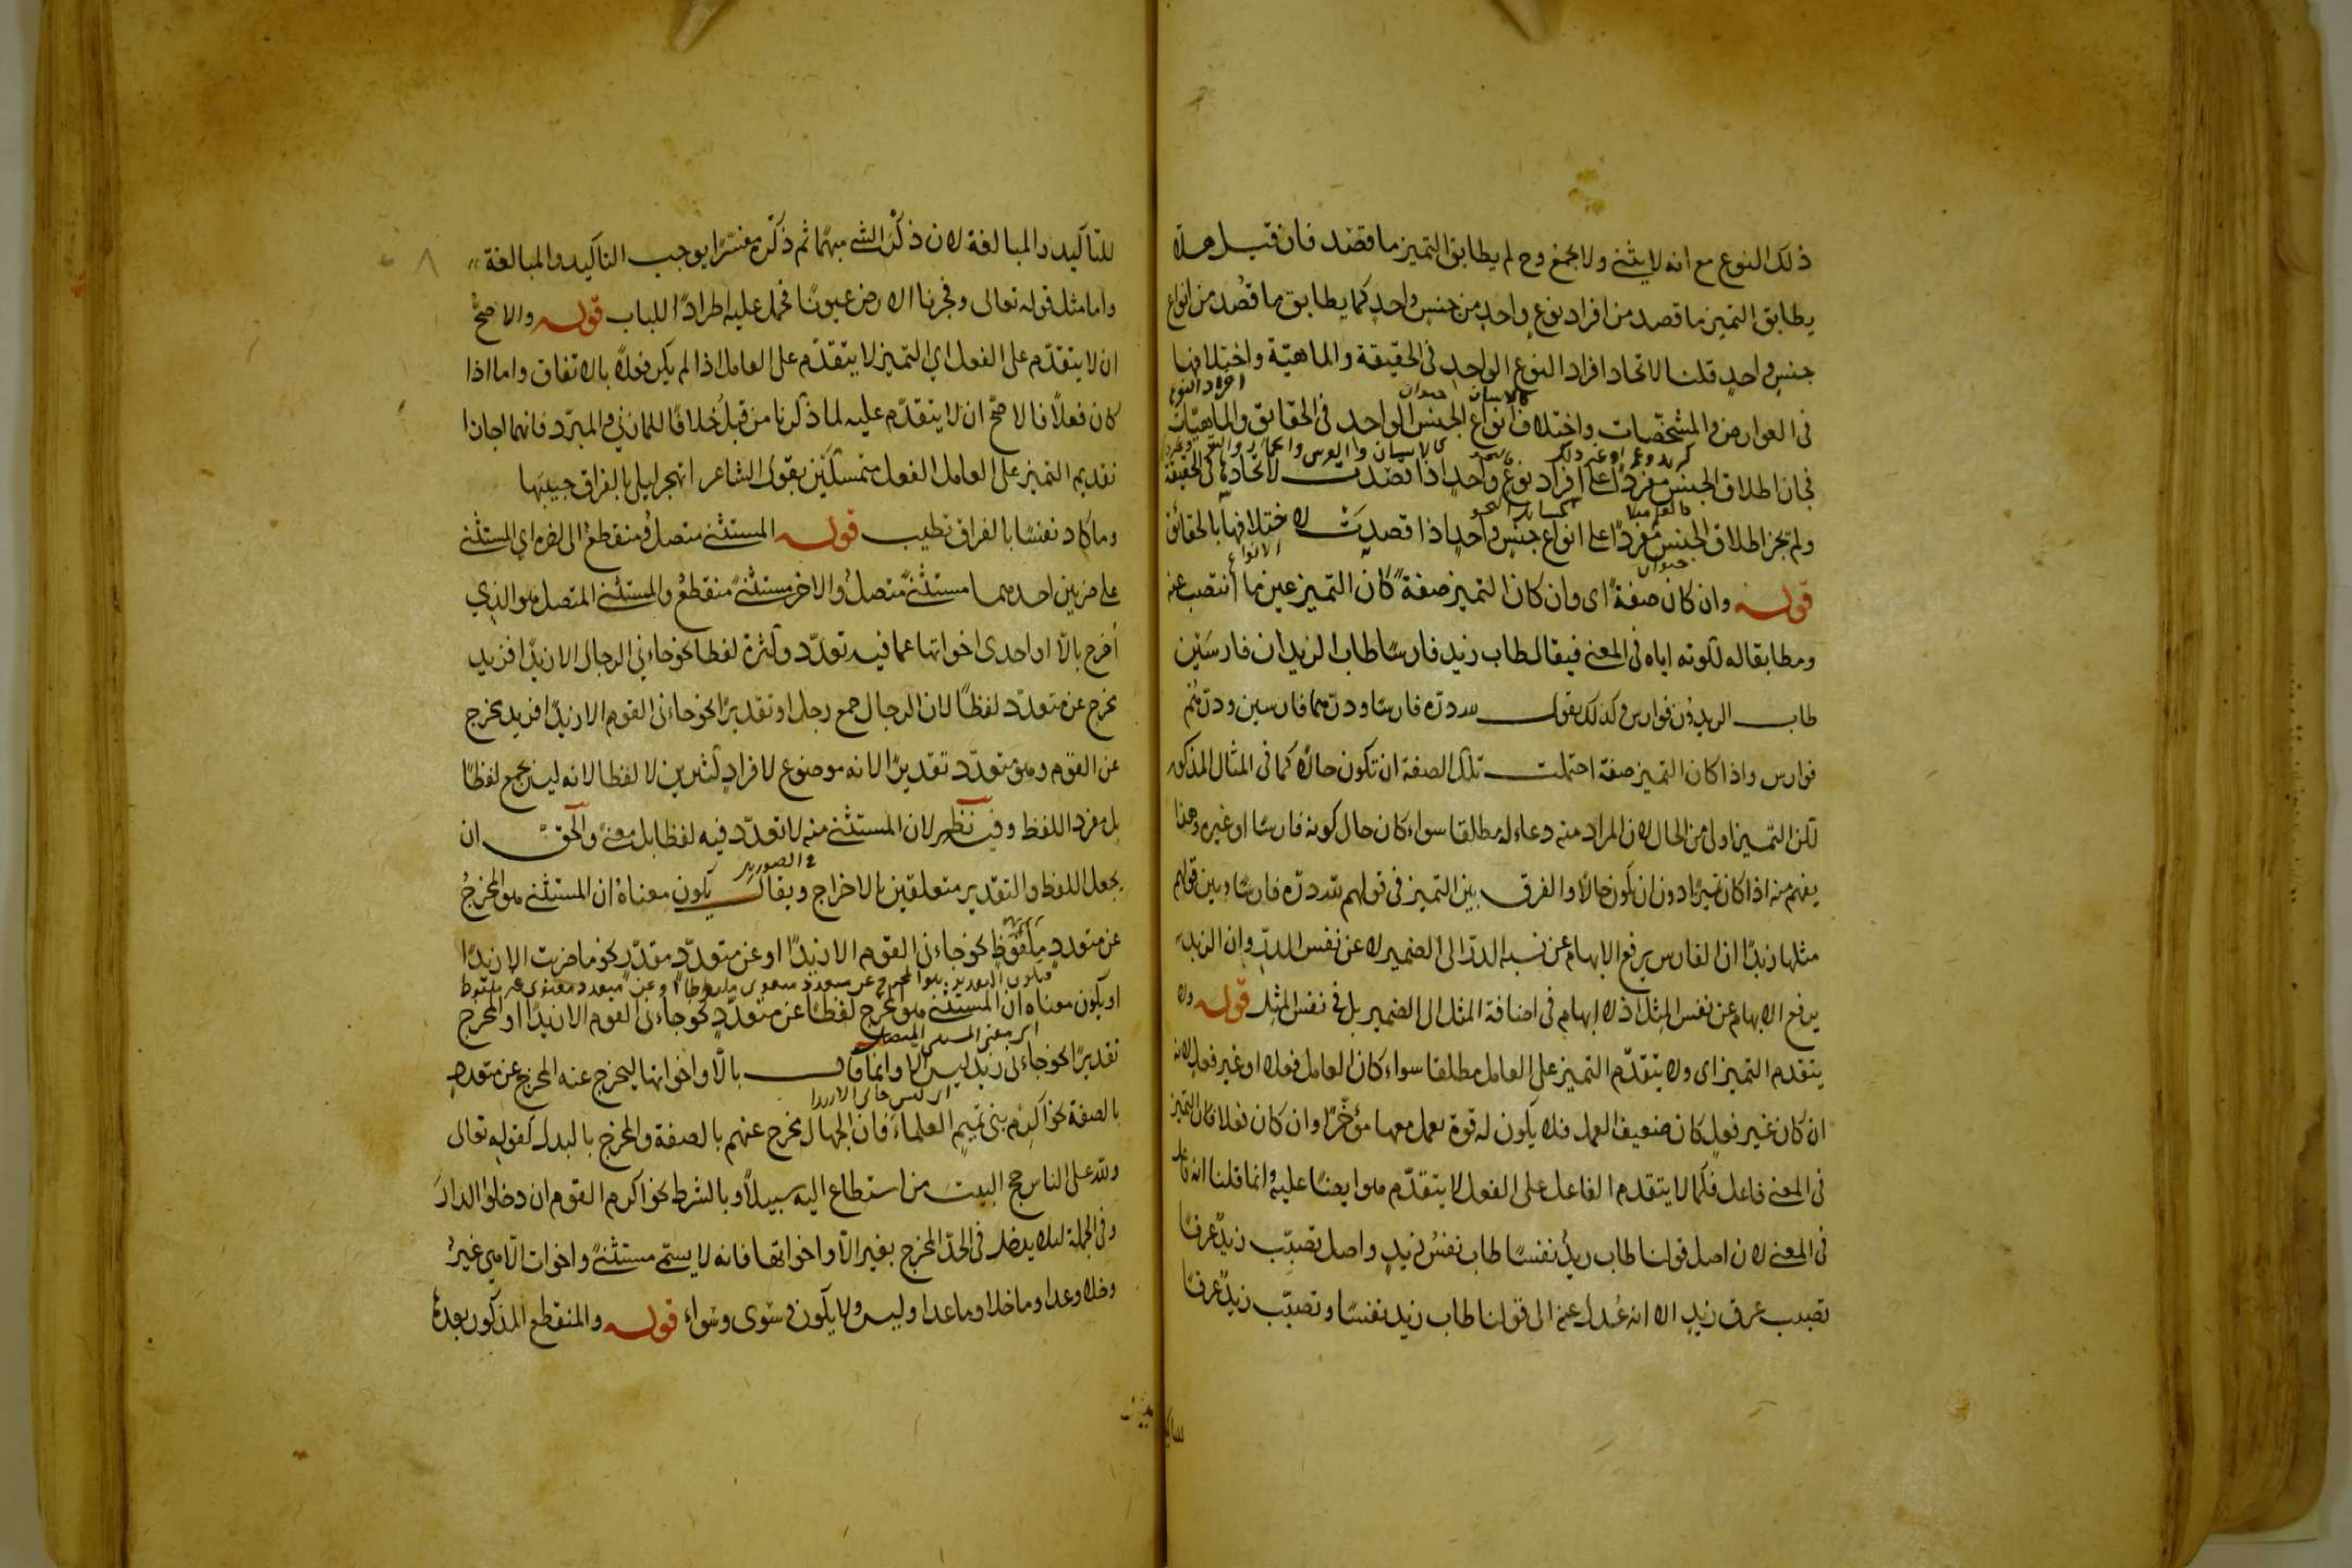 ذلك النوع مع انه لا يثنى ولا يجمع وح لم يطابق التميز ما قصد فان قيل هلا
يطابق التميز ما قصد من افراد نوع واحد من جنس واحد كما يطابق ما قصد من انواع
جنس واحد قلنا لاتحاد افراد النوع الواحد فى الحقيقة والماهية واختلافها
افراد النوع
كالانسان حيوان
فى العوارض والمشخصات واختلاف انواع الجنس الواحد فى الحقايق والماهيات
كزيد وعمرو وغير ذلك
فجاز اطلاق الجنس مفردا على افراد نوع واحد اذا قصدت لاتحادها فى الحقيقة
ولم يجز اطلاق الجنس مفردا على انواع جنس واحد اذا قصدت لاختلافها بالحقائق
الانواع
حيوان
قوله وان كان صفة اى وان كان التميز صفة كان التميز عين ما انتصب عنه
ومطابقا له لكونه اياه فى المعنى فيقال طاب زيد فارسا طاب الزيدان فارسين
طاب الزيدون فوارس وكذلك يقول لله دره فارسا ودرهما فارسين ودرهم
فوارس واذا كان التميز صفة احتملت تلك الصفة ان تكون حالا كما فى المثال المذكور
لكن التميز اولى من الحال لان المراد منه دعاء له مطلقا سواء كان حال كونه فارسا او غيره وهذا
يفهم منه اذا كان تميزا دون ان يكون حالا والفرق بين التميز فى قولهم لله دره فارسا وبين قولهم
مثلها زبدا ان الفارس يرفع الابهام عن نسبة الدر الى الضمير لا عن نفس الدر وان الزبد
يرفع الابهام عن نفس المثل اذ لا ابهام فى اضافة المثل الى الضمير بل فى نفس المثل قوله ولا
يتقدم التميز اى ولا يتقدم التميز على العامل مطلقا سواء كان العامل فعلا او غير فعل لانه
ان كان غير فعل كان ضعيف العمل فلا يكون له قوة يعمل معها مؤخرا وان كان فعلا فان التميز
فى المعنى فاعل فكما لا يتقدم الفاعل على الفعل لا يتقدم هو ايضا عليه وانما قلنا انه فاعل
فى المعنى لان اصل قولنا طاب زيد نفسا طاب نفس زيد واصل تصبب زيد عرقا
تصبب عرق زيد الا انه عدل عنه الى قولنا طاب زيد نفسا وتصبب زيد عرقا
للتأكيد
للتاكيد والمبالغة لان ذكر الشئ مبهما ثم ذكره مفسرا يوجب التاكيد والمبالغة
واما مثل قوله تعالى وفجرنا الارض عيونا فحمل عليه اطرادا للباب قوله والاصح
ان لا يتقدم على الفعل اي التميز لا يتقدم على العامل اذا لم يكن فعلا بالاتفاق واما اذا
كان فعلا فالاصح ان لا يتقدم عليه لما ذكرنا من قبل خلافا للمازني والمبرد فانهما اجازا
تقديم التميز على العامل الفعل متمسكين بقول الشاعر اتهجر ليلى بالفراق حبيبها
وما كاد نفسا بالفراق تطيب قوله المستثنى متصل ومنقطع الى اخره اي المستثنى
على ضربين احدهما مستثنى متصل والاخر مستثنى منقطع والمستثنى المتصل هو الذي
اخرج بالا او احدى اخواتها عما فيه تعدد وكثرة لفظا نحو جاءنى الرجال الا زيدا فزيد
يخرج عن متعدد لفظا لان الرجال جمع رجل او تقديرا نحو جاءنى القوم الا زيدا فزيد يخرج
عن القوم وهو متعدد تقديرا لانه موضوع لافراد كثيرين لا لفظا لانه ليس بجمع لفظا
بل مفرد اللفظ وفيه نظر لان المستثنى منه لا تعدد فيه لفظا بل معنى والحق ان
فى الصورتين
يجعل اللفظ والتقدير متعلقين بالاخراج ويقال يكون معناه ان المستثنى هو المخرج
عن متعدد ملفوظ نحو جاءنى القوم الا زيدا او عن متعدد مقدر نحو ما ضربت الا زيدا
او يكون معناه ان المستثنى هو المخرج لفظا عن متعدد نحو جاءنى القوم الا زيدا او المخرج
تقديرا نحو جاءنى زيد ليس الا وانما قال بالا واخواتها ليخرج عنه المخرج عن متعدد
بالصفة نحو اكرم بنى تميم العلماء فان الجهال يخرج عنهم بالصفة والمخرج بالبدل كقوله تعالى
ولله على الناس حج البيت من استطاع اليه سبيلا وبالشرط نحو اكرم القوم ان دخلوا الدار
وفى الجملة لئلا يدخل فى الحد المخرج بغير الا واخواتها فانه لا يسمى مستثنى واخوات الا هي غير
وخلا وعدا وما خلا وما عدا وليس ولا يكون وسوى وسواء قوله والمنقطع المذكور بعدها